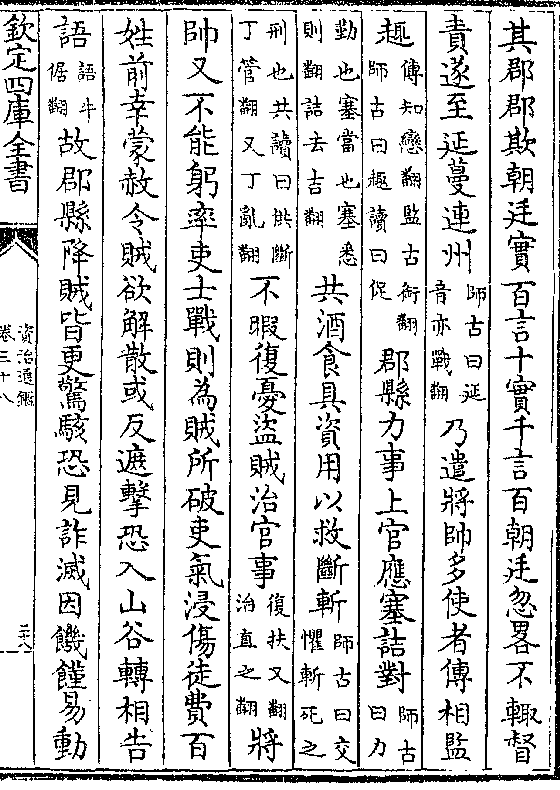 其郡郡欺朝廷實百言十實千言百朝廷忽畧不輒督
責遂至延蔓連州師古曰延音亦戰翻乃遣將帥多使者傳相監
趣傳知戀翻監古銜翻師古曰趣讀曰促郡縣力事上官應塞詰對師古曰力
勤也塞當也塞悉則翻詰去吉翻共酒食具資用以救斷斬師古曰交懼斬死之
刑也共讀曰供斷丁管翻又丁亂翻不暇復憂盜賊治官事復扶又翻治直之翻將
帥又不能躬率吏士戰則為賊所破吏氣浸傷徒費百
姓前幸蒙赦令賊欲解散或反遮擊恐入山谷轉相告
語語牛倨翻故郡縣降賊皆更驚駭恐見詐滅因饑饉易動
欽定四庫全書
資治通鑑
卷三十八